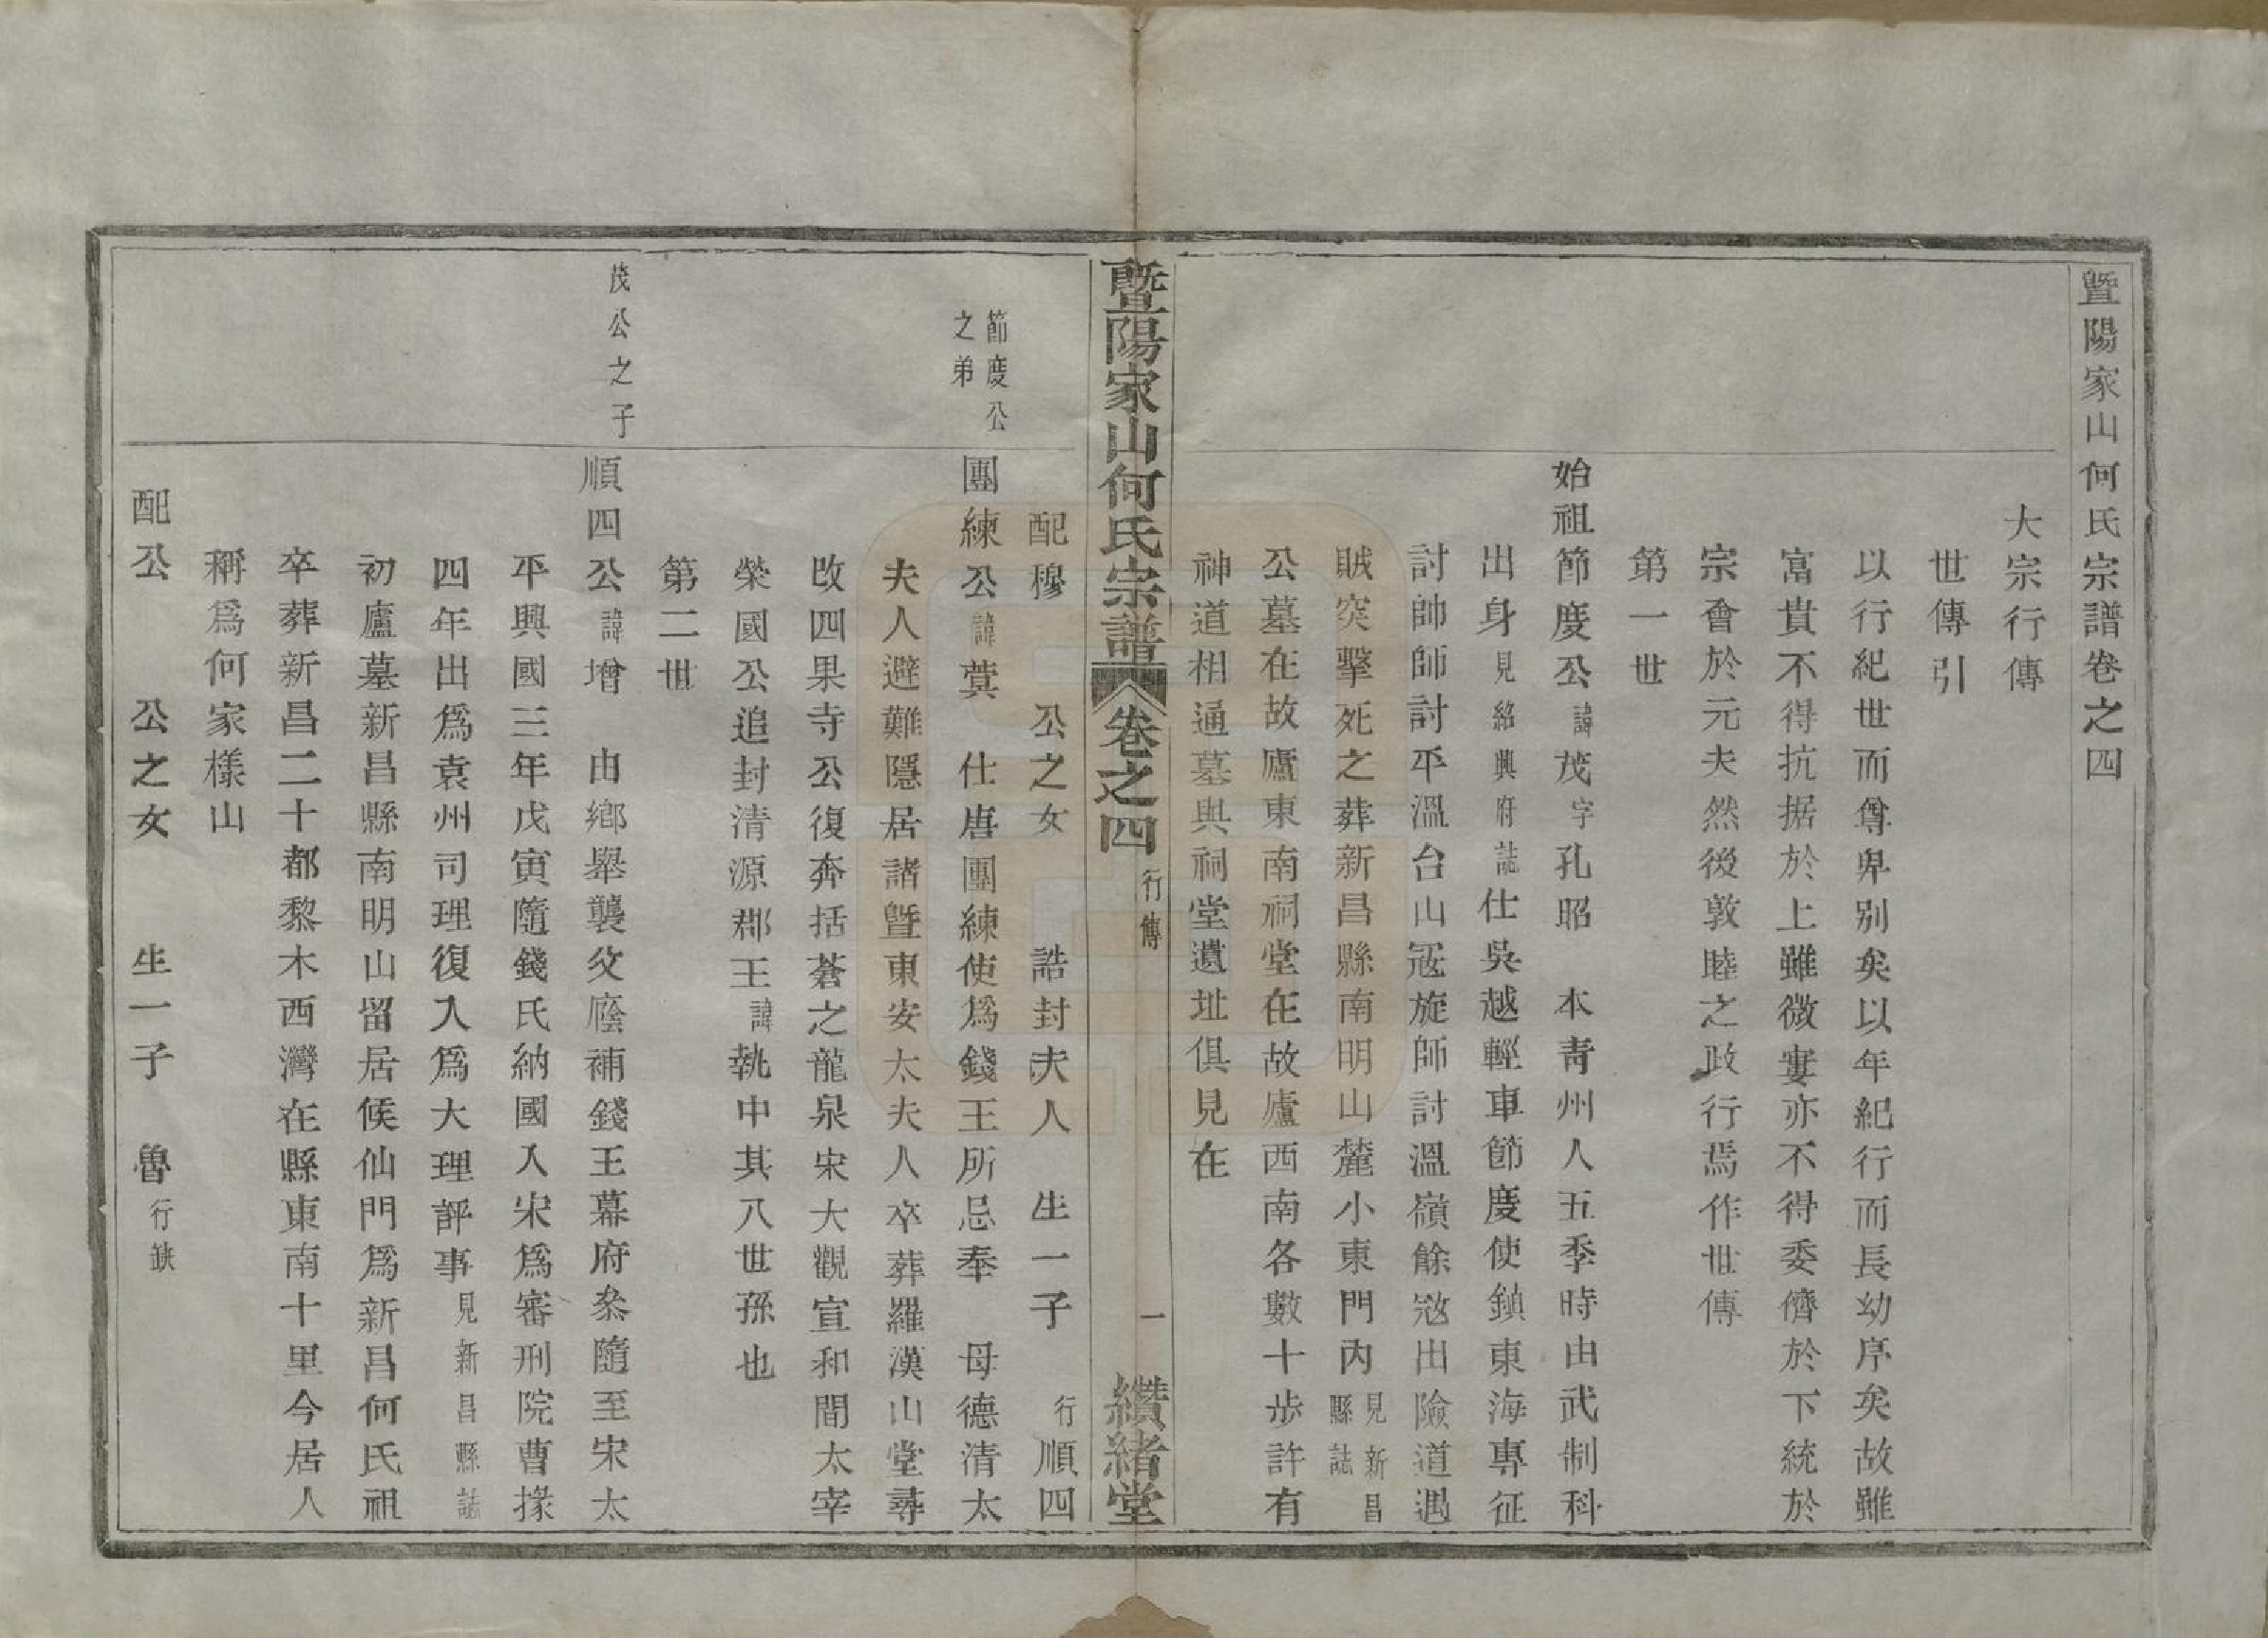 暨陽家山何氏宗譜卷之四
大宗行傳
世傳引
以行紀世而尊卑别矣以年紀行而長幼序矣故雖
富貴不得抗据於上雖微寠亦不得委儕於下統於
宗會於元夫然後敦睦之政行焉作世傳
第一世
始祖節度公諱茂字孔昭　本青州人五季時由武制科
出身見紹興府誌仕吳越輕車節度使鎮東海專征
討帥師討平溫台山冦旋師討溫嶺餘冦出險道遇
賊突擊死之葬新昌縣南明山麓小東門內見新昌縣誌
公墓在故廬東南祠堂在故廬西南各數十步許有
神道相通墓與祠堂遺址俱見在
暨陽家山何氏宗譜　卷之四　行傳　一　纘緒堂
配穆　公之女　誥封夫人　生一子　行順四
節度公之弟
團練公諱蓂　仕唐團練使爲錢王所忌奉　母德清太
夫人避難隱居諸暨東安太夫人卒葬羅漢山堂尋
改四果寺公復奔括蒼之龍泉宋大觀宣和間太宰
榮國公追封清源郡王諱執中其八世孫也
第二世
茂公之子
順四公諱增　由鄉舉襲父廕補錢王幕府叅隨至宋太
平興國三年戊寅隨錢氏納國入宋爲審刑院曹掾
四年出爲袁州司理復入爲大理評事見新昌縣誌
初廬墓新昌縣南明山留居候仙門爲新昌何氏祖
卒葬新昌二十都黎木西灣在縣東南十里今居人
稱爲何家樣山
配公　公之女　生一子　魯行缺